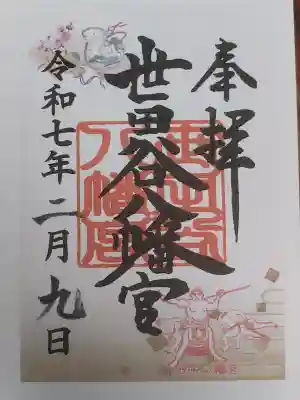 奉拝
世田谷八幡宮
令和七年二月九日